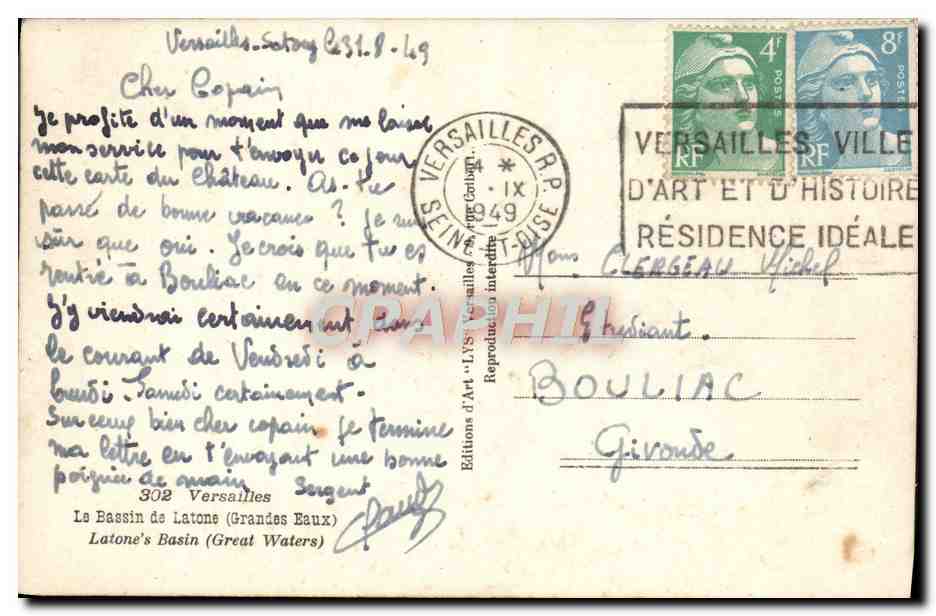 Versailles-Satory le 31-8-49
Cher Copain
Je profite d'un moment que me laisse
mon service pour t'envoyer ce jour
cette carte du Château. As-tu
passé de bonne vacances ? Je suis
sûr que oui. Je crois que tu es
rentré à Bouliac en ce moment.
J'y viendrai certainement dans
le courant de Vendredi à
Lundi. Samedi certainement.
Sur ceux bien cher copain je termine
ma lettre en t'envoyant une bonne
poignée de main Sergent
302 Versailles
Le Bassin de Latone (Grandes Eaux)
Latone's Basin (Great Waters)
Editions d'Art "LYS" Versailles
rue Colbert
Reproduction interdite
VERSAILLES R.P.
4 *
IX
1949
SEINE-ET-OISE
4F
POSTES
RF
8F
POSTES
RF
VERSAILLES VILLE
D'ART ET D'HISTOIRE
RÉSIDENCE IDÉALE
Mons CLERGEAU Michel
Etudiant.
BOULIAC
Gironde
CPAPHIL